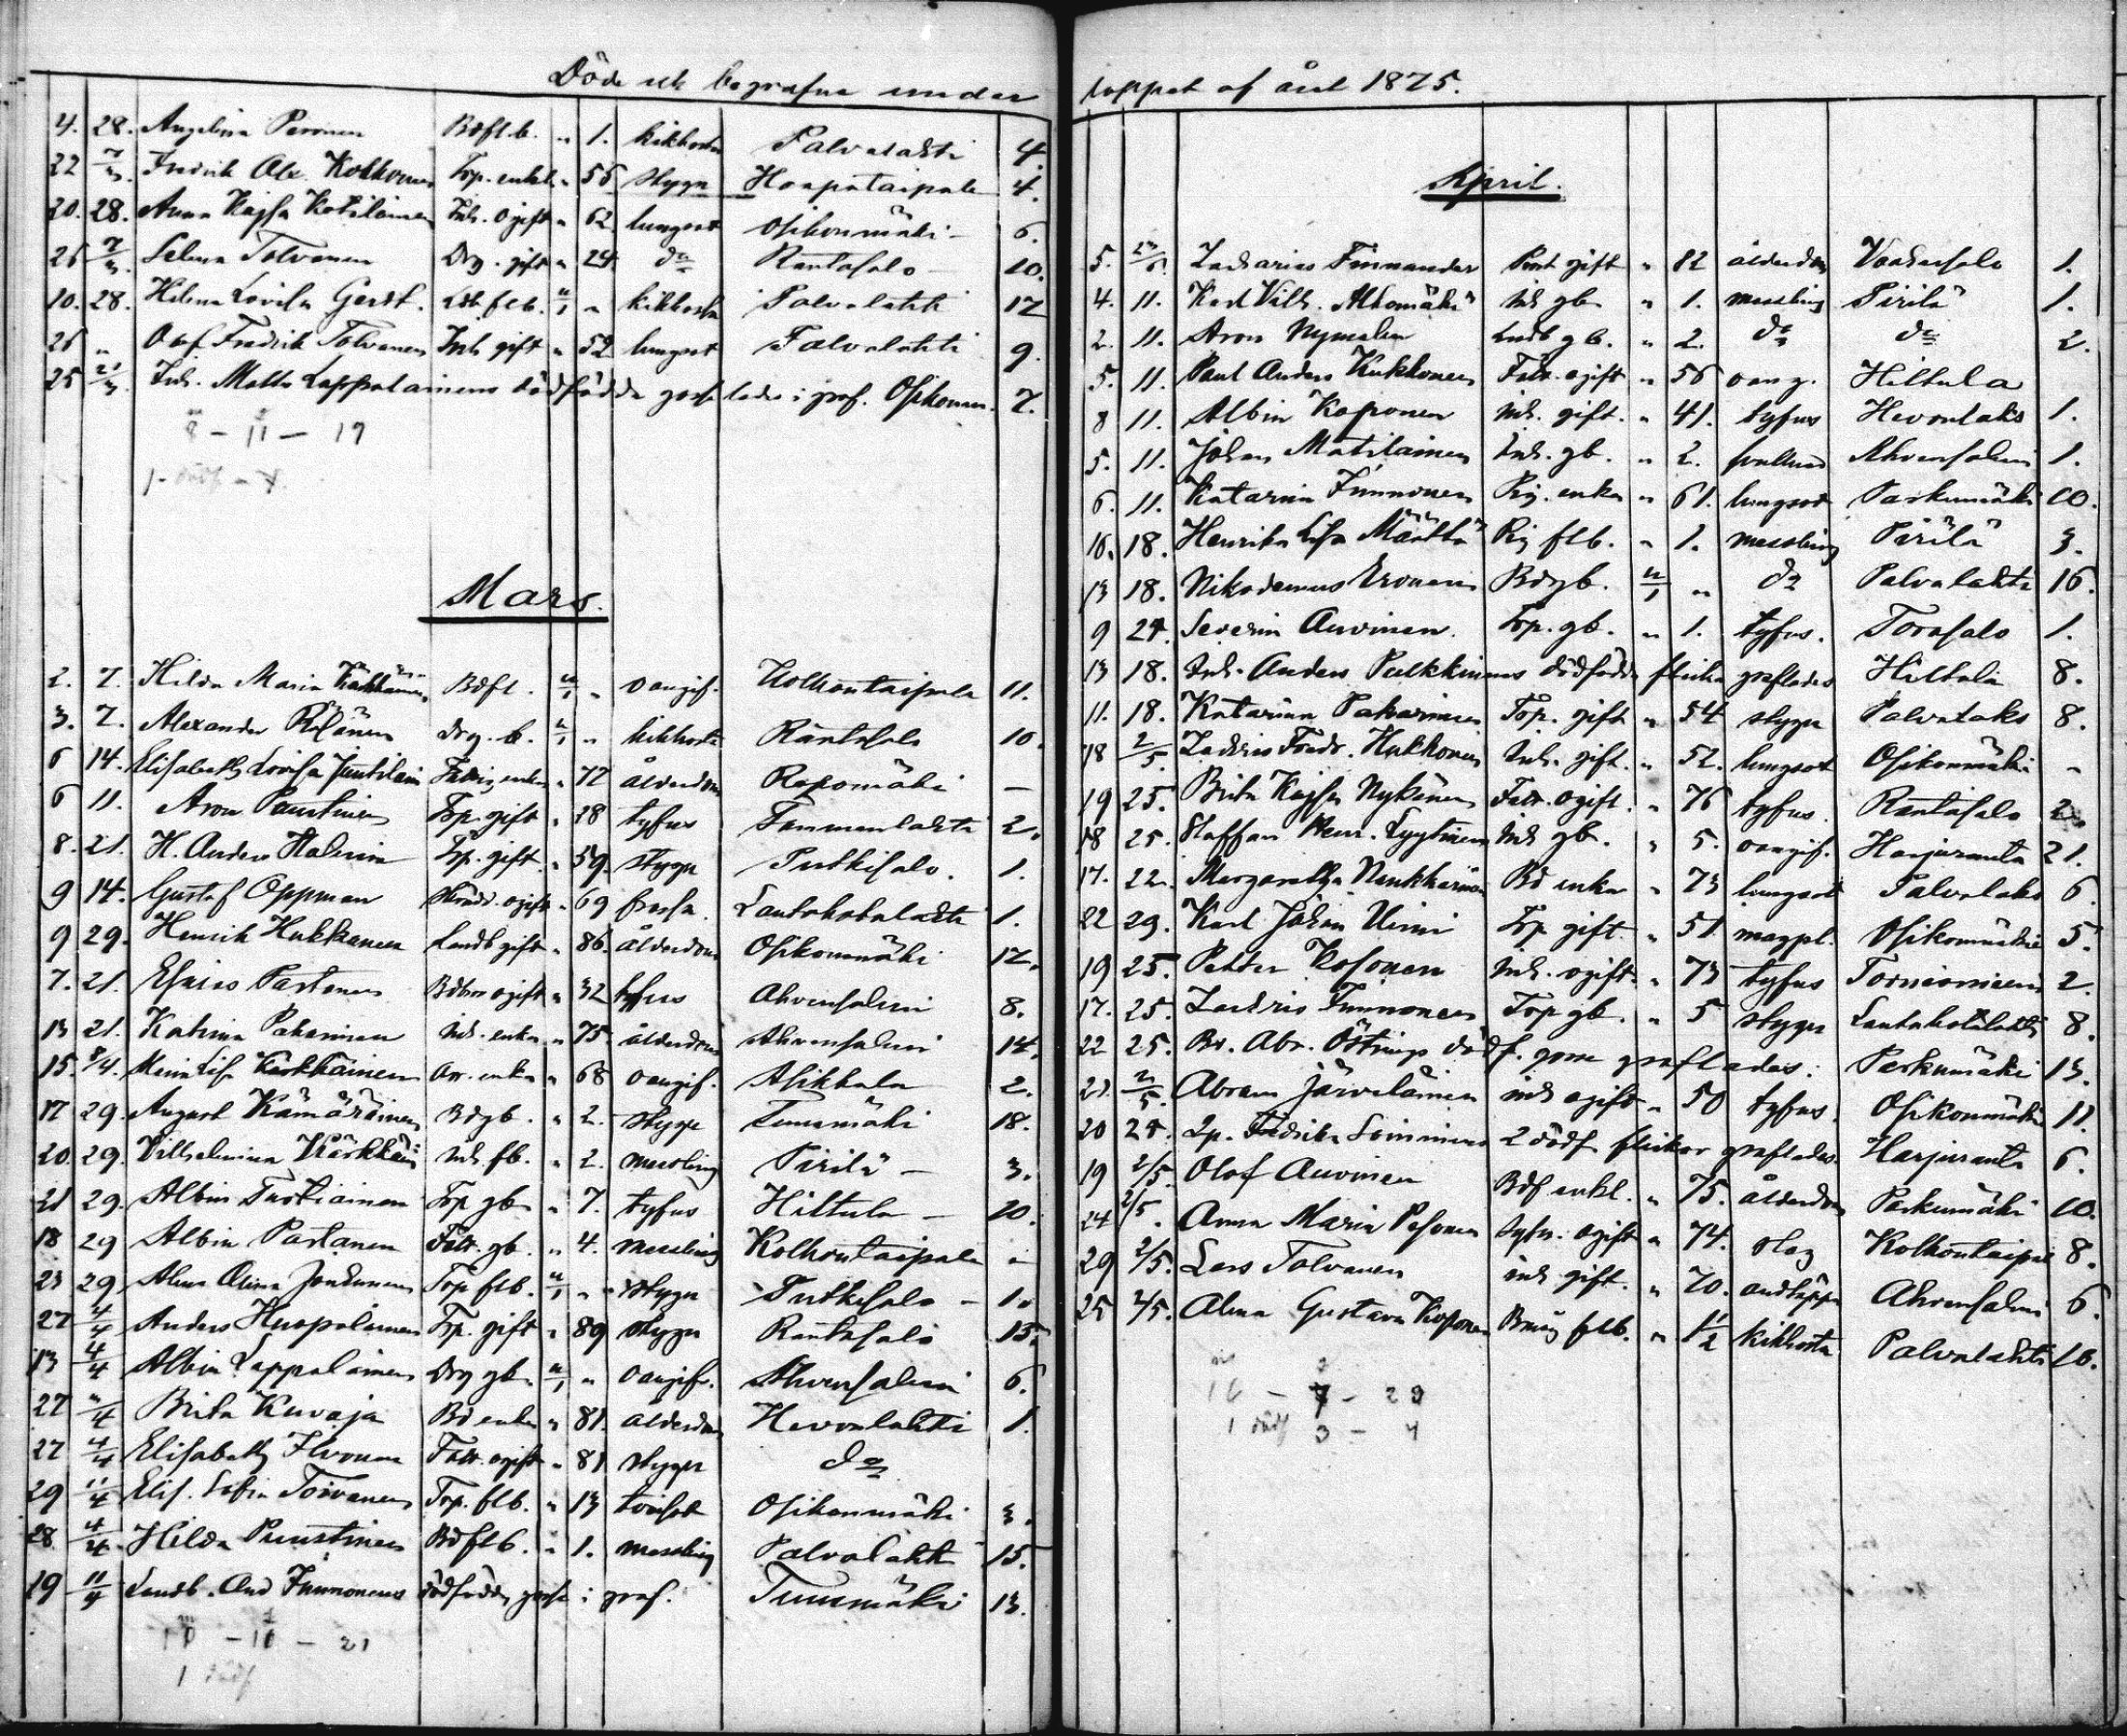 Döde och begrafne under
4. 28. Angelina Peronen Bdflb. " 1. kikhosta Palvalahti 4.
22 7/3. Fredrik Alex. Kokkonen Trp. enkl. " 56 stygn Haapataipale 4.
20. 28. Anna Kajsa Kotilainen Inh. ogift " 62 lungsot Osikonmäki 6.
26 7/3. Selma Tolvanen Drg. gift " 24 do Rantasalo 10.
10. 28. Helena Lovisa Gerdt. Ldb. flb. 11/1 " kikhosta Palvalahti 12
26 " Olof Fredrik Tolvanen Inh gift " 52 lungsot Palvalahti 9.
25 21/3. Inh. Matts Lappalainens dödfödde gosse lades i graf. Osikonm. 7.
m 8 - f 11 - 19
1 dödf
Mars.
2. 7. Hilda Maria Kärkkäinen Bdfl. 11/1 " oangif. Kolkontaipale 11.
3. 7. Alexander Rösänen Drg. b. 11/1 " kikhosta Rantasalo 10.
6 14. Elisabeth Lovisa Juntilain enka " 72 ålderdom Repomäki —
6 11. Aron Puustinen Trp. gift " 38 tyfus Tammenlahti 2.
8. 21. H. Anders Halinin Trp. gift " 59. stygn Putkisalo. 1.
9 14. Gustaf Oppman ogift " 69 frossa. Lautakotalahti 1.
9 29. Henrik Hukkanen Landb gift " 86. ålderdom Osikonmäki 12.
7. 21. Esaias Partanen ogift " 32 tyfus Ahvensalmi 8.
13 21. Katrina Pakarinen Inh. enka " 75. ålderdom Ahvensalmi 14.
15. 8/4. Maria Lisa Kärkkäinen enka " 68 oangif. Asikkala 2.
17 29. August Kämäräinen Bdgb. " 2. stygn Tuusmäki 18.
20. 29. Vilhelmina Kärkkäin Inh. fb. " 2. messling Pirilä — 3.
21 29. Albin Turtiainen Trp gb " 7. tyfus Hiltula — 20.
18 29 Albin Partanen gb. " 4. messling Kolkontaipale —
23 29 Alma Jonkunen Trp flb. 11/1 " stygn Putkisalo — 1.
27 4/4 Anders Huopalainen Trp. gift " 89 stygn Rantasalo 15.
13 4/4 Albin Lappalainen Drg gb. 11/1 " oangif. Ahvensalmi 6.
27 4/4 Brita Kuvaja Bd enka " 81. ålderdom Hevonlahti 1.
27 4/4 Elisabeth Ilvonen ogift " 81 stygn do
29 11/4 Elis. Sofia Toivanen Trp. flb. " 13 Osikonmäki 3.
28. 4/4. Hilda Puustinen Bdflb. " 1. messling Palvalahti 15.
29 11/4 Landb. And Immonens dödfödde gosse i graf. Tuusmäki 13.
m 10 - f 10 - 21
1 dödf
loppet af året 1875.
April.
5. 23/5. Zacharias Finnander gift " 82 ålderdom Voakersalo 1.
4. 11. Karl Vilh. Ahomäki Inh gb " 1. messling Pirilä 1.
2. 11. Aron Nymalen Landb gb. " 2. do do 2.
5. 11. Paul Anders Kukkonen ogift " 56 oang. Hiltula
8 11. Albin Koponen Inh. gift. " 41. tyfus Hevonlaks 1.
5. 11. Johan Matilainen Inh. gb. " 2. Ahvensalmi 1.
6. 11. Katarina Immonen enka " 61. lungsot Paskumäki 10.
16. 18. Henrika Lisa Määttä flb. " 1. messling Pirilä 3.
13 18. Nikodemus Eronen Bdgb. 11/1 " do Palvalahti 16.
9 24. Severin Auvinen. Trp. gb. " 1. tyfus. Torasalo 1.
13 18. Inh. Anders Pulkkinens dödfödde flicka graflades Hiltula 8.
11. 18. Katarina Pakarinen Trp. gift " 54 stygn Palvalaks 8.
18 2/5. Zachris Fredr. Hukkonen Inh. gift. " 52. lungsot Osikonmäki "
19 25. Brita Kajsa Nykänen ogift. " 76 tyfus. Rantasalo 2.
18 25. Staffan Henr. Lyytinen Inh gb. " 5. oangif. Harjuranta 21.
17. 22. Margaretha Naukkarinen Bd enka " 73 lungsot Palvalaks 6.
22 29. Karl Johan Uimi Trp gift. " 51 magpl. Osikonmäki 5.
19 25. Petter Kosonen Inh. ogift. " 73 tyfus Torniomiemi 2.
17. 25. Zachris Immonen Trp gb. " 5 stygn Lautakotalahti 8.
22 25. Bd. Abr. Östrings dödf. gosse graflades. Paskumäki 13.
23. 2/5. Abram Järveläinen Inh ogift " 50 tyfus. Osikonmäki 11.
20 24. Fredrika Soininens 2 dödf. flickor graflades. Harjuranta 6.
19 2/5. Olof Auvinen Bdf enkl. " 75. ålderdom Paskumäki 10.
24 2/5. Anna Maria Pesonen ogift " 74. slag Kolkontaipal 8.
29 2/5. Lars Tolvanen Inh gift. " 70. andtäppa Ahvensalmi 6.
25 2/5. Alma Gustava Koponen flb. " 1 1/2 kikhosta Palvalahti 16.
m 16 - f 7 - 23
1 dödf 3 - 4